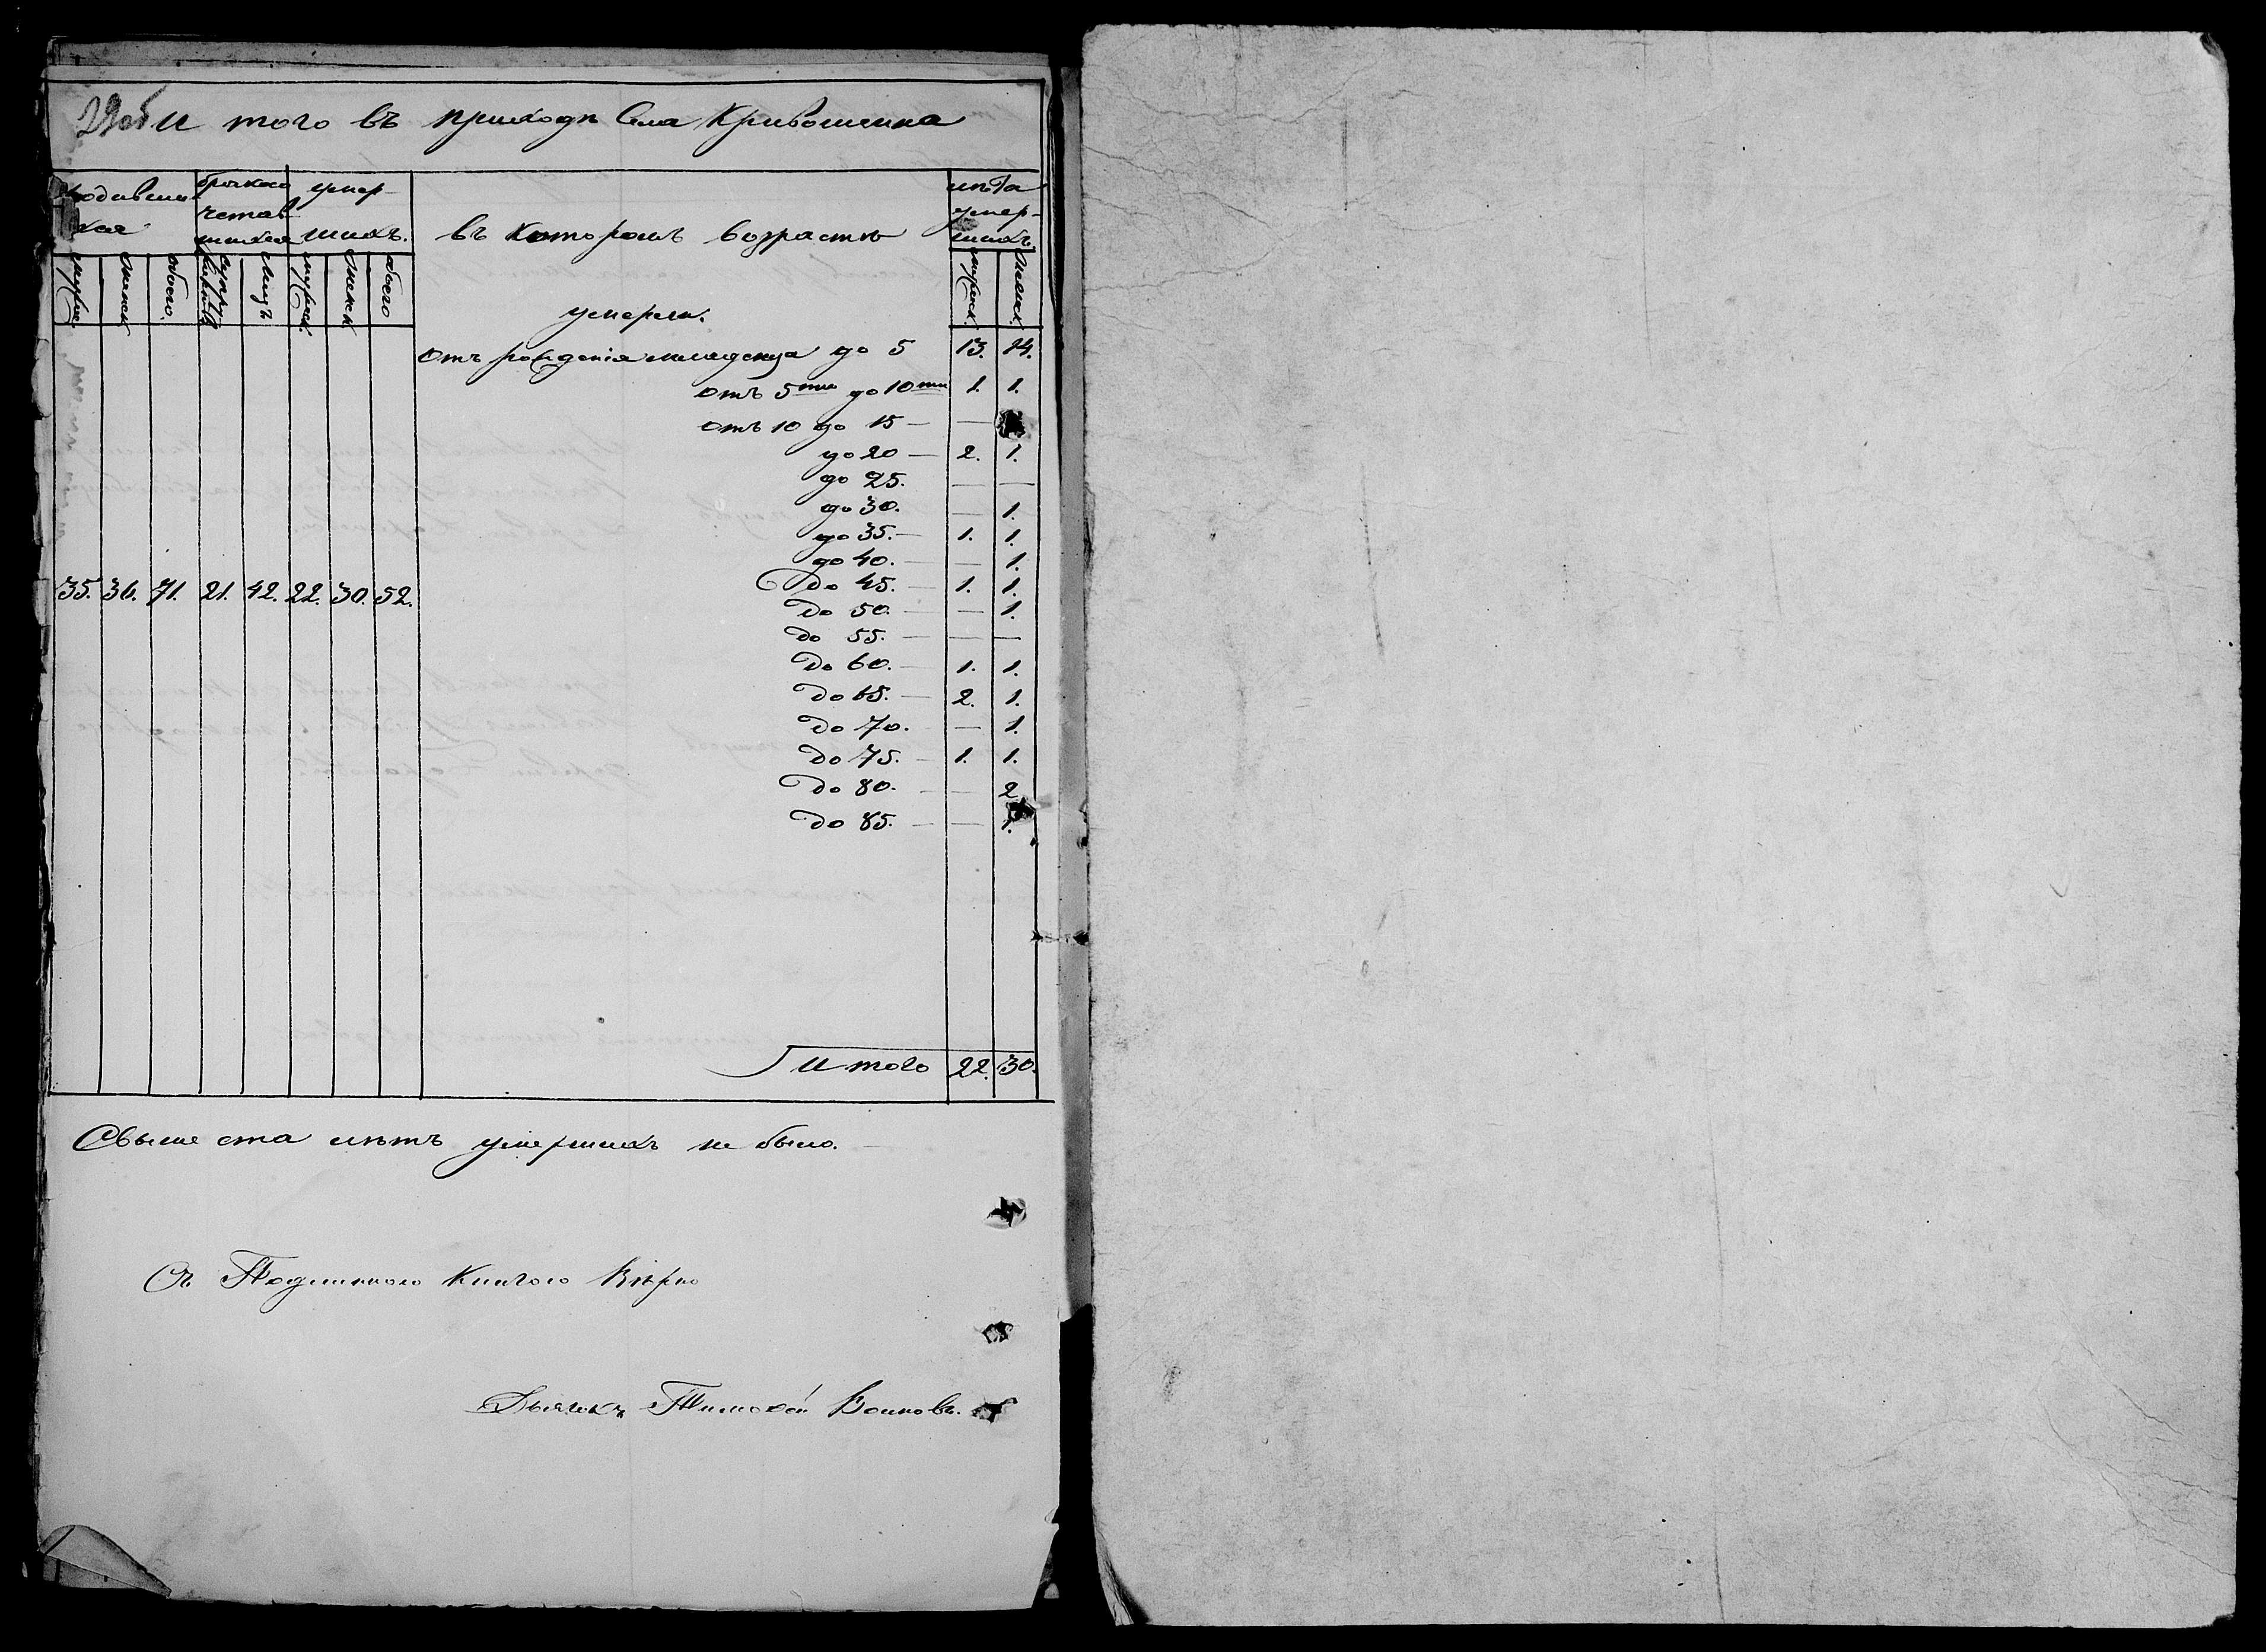 22об И того въ приходѣ Села Кривошеина
родивших
ся
бракосо
четав
шихся
умер-
шихъ.
въ которомъ возрастѣ
умерли.
лѣта
умер-
шихъ.
мужск.
женск
обоего.
супру-
жествъ
лицъ
мужск.
женск
обоего
мужск.
женск.
Отъ рожденія младенца до 5 13. 14.
Отъ 5ти до 10ти 1. 1.
Отъ 10 до 15 — —
до 20 — 2. 1.
до 25. — —
до 30. — 1.
до 35. — 1. 1.
до 40. — — 1.
35. 36. 71. 21. 42. 22. 30. 52. До 45. — 1. 1.
До 50. — — 1.
До 55. — — —
До 60. — 1. 1.
До 65. — 2. 1.
До 70. — 1.
До 75. — 1. 1.
До 80. — — 2
До 85. — — 1.
И того 22. 30.
Свыше ста лѣтъ умершихъ не было.
Съ Подлинною Книгою Вѣрно
Дьячекъ Тимоѳей Воиновъ.